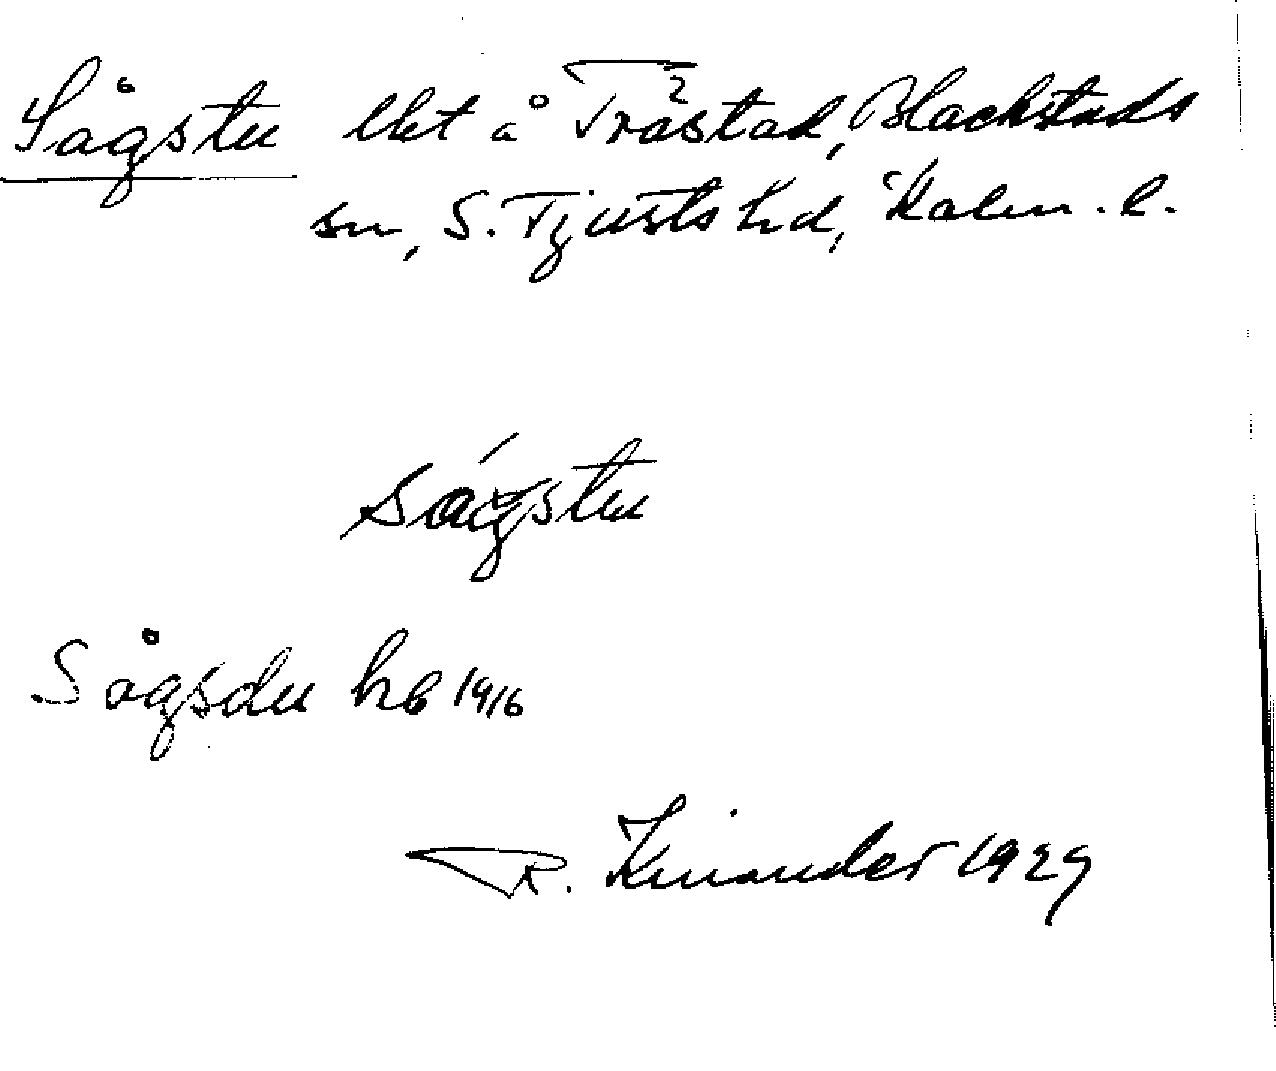 Sågstu lht å Tråstad, Blackstads
sn, S. Tjusts hd, Kalm. l.
ságstu
Sågsdu hb 1916
R. Kinander 1929